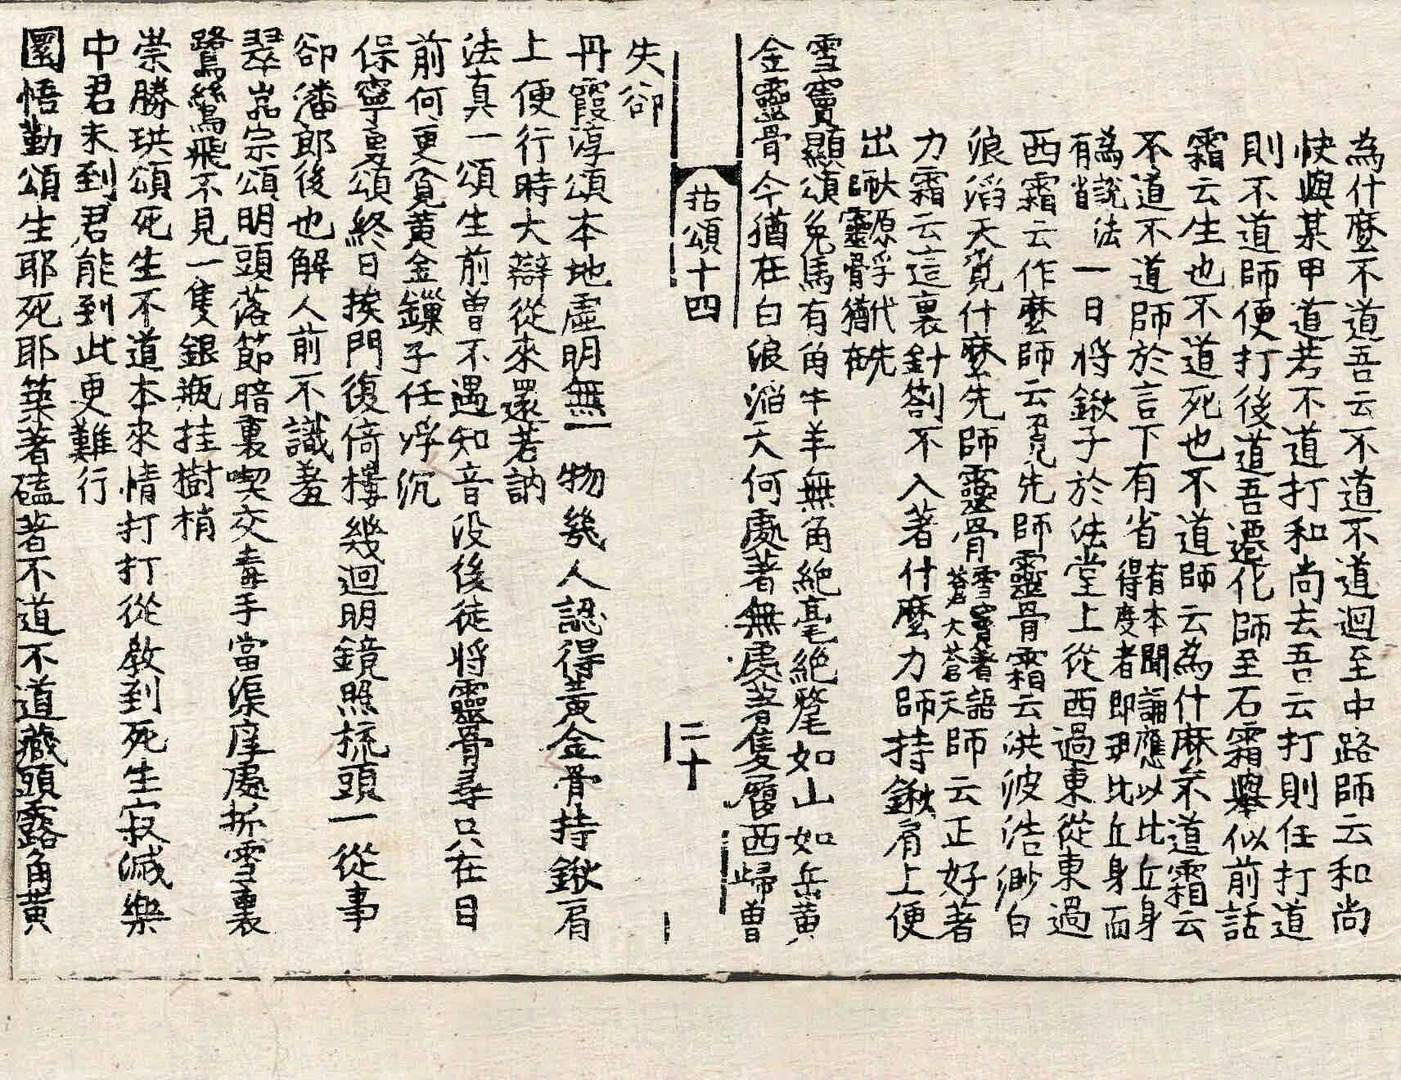 為什麼不道吾云不道不道迴至中路師云和尚
快與某甲道若不道打和尚去吾云打則任打道
則不道師便打後道吾遷化師至石霜舉似前話
霜云生也不道死也不道師云為什麻不道霜云
不道不道師於言下有省有本聞誦應以比丘身
得度者即現比丘身而
為說法
有省一日將鍬子於法堂上從西過東從東過
西霜云作麼師云覓先師靈骨霜云洪波浩渺白
浪滔天覓什麼先師靈骨雪竇著語
蒼天蒼天師云正好著
力霜云這裏針劄不入著什麼力師持鍬肩上便
出
雪竇顯頌兔馬有角牛羊無角絕毫絕氂如山如岳黃
金靈骨今猶在白浪滔天何處著無處著隻履西歸曾
拈頌十四
二十
失卻
丹霞淳頌本地虛明無一物幾人認得黃金骨持鍬肩
上便行時大辯從來還若訥
法真一頌生前曾不遇知音沒後徒將靈骨尋只在目
前何更負黃金鏁子任浮沉
保寧勇頌終日挨門復倚樓幾迴明鏡照梳頭一從事
卻潘郎後也解人前不識羞
翠嵓宗頌明頭落節暗裏喫交毒手當渠痒處折雪裏
鷺鷥飛不見一隻銀瓶挂樹梢
崇勝珙頌死生不道本來情打打從教到死生寂滅樂
中君未到君能到此更難行
圜悟勤頌生耶死耶築著磕著不道不道藏頭露角黃